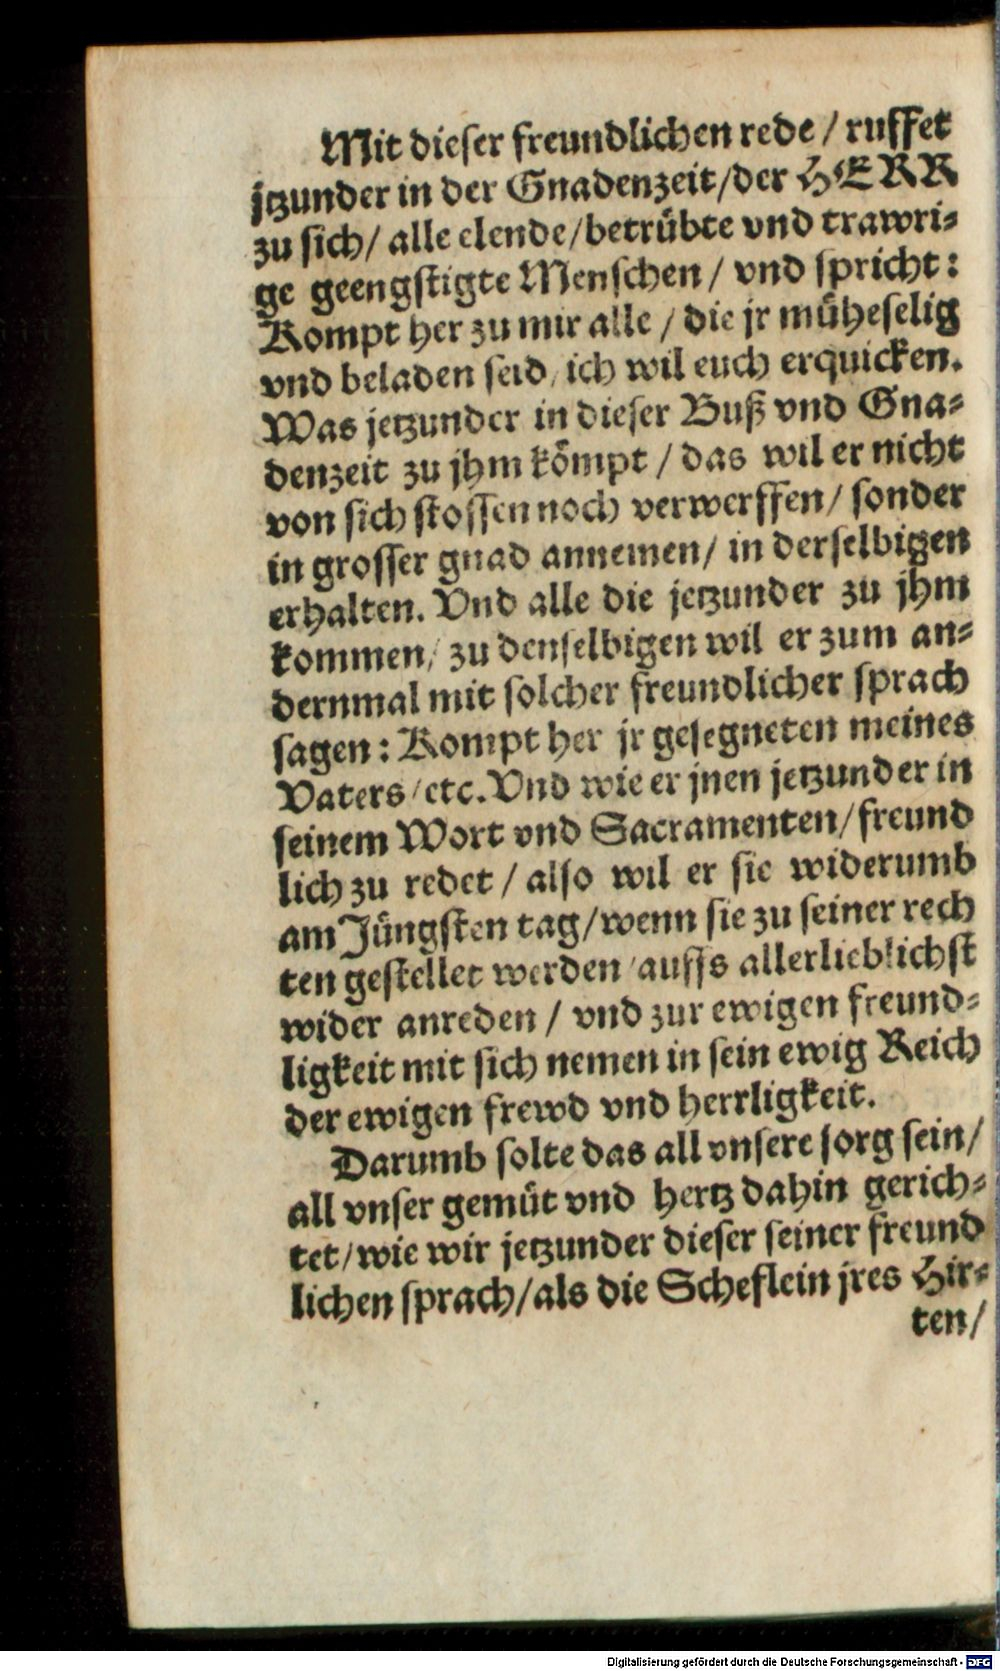 Mit dieser freundlichen rede / ruffet
jtzunder in der Gnadenzeit/der HERR
zu sich/ alle elende/betrübte vnd trawri-
ge geengstigte Menschen / vnd spricht:
Kompt her zu mir alle / die jr müheselig
vnd beladen seid/ ich wil euch erquicken.
Was jetzunder in dieser Buß vnd Gna-
denzeit zu jhm kömpt / das wil er nicht
von sich stossen noch verwerffen/ sonder
in grosser gnad annemen/ in derselbigen
erhalten. Vnd alle die jetzunder zu jhm
kommen/ zu denselbigen wil er zum an-
dernmal mit solcher freundlicher sprach
sagen: Kompt her jr gesegneten meines
Vaters/etc. Vnd wie er jnen jetzunder in
seinem Wort vnd Sacramenten/freund
lich zu redet / also wil er sie widerumb
am Jüngsten tag/wenn sie zu seiner rech
ten gestellet werden/auffs allerlieblichst
wider anreden / vnd zur ewigen freund-
ligkeit mit sich nemen in sein ewig Reich
der ewigen frewd vnd herrligkeit.
Darumb solte das all vnsere sorg sein/
all vnser gemüt vnd hertz dahin gerich-
tet/wie wir jetzunder dieser seiner freund
lichen sprach/als die Scheflein jres Hir-
ten/
Digitalisierung gefördert durch die Deutsche Forschungsgemeinschaft - DFG